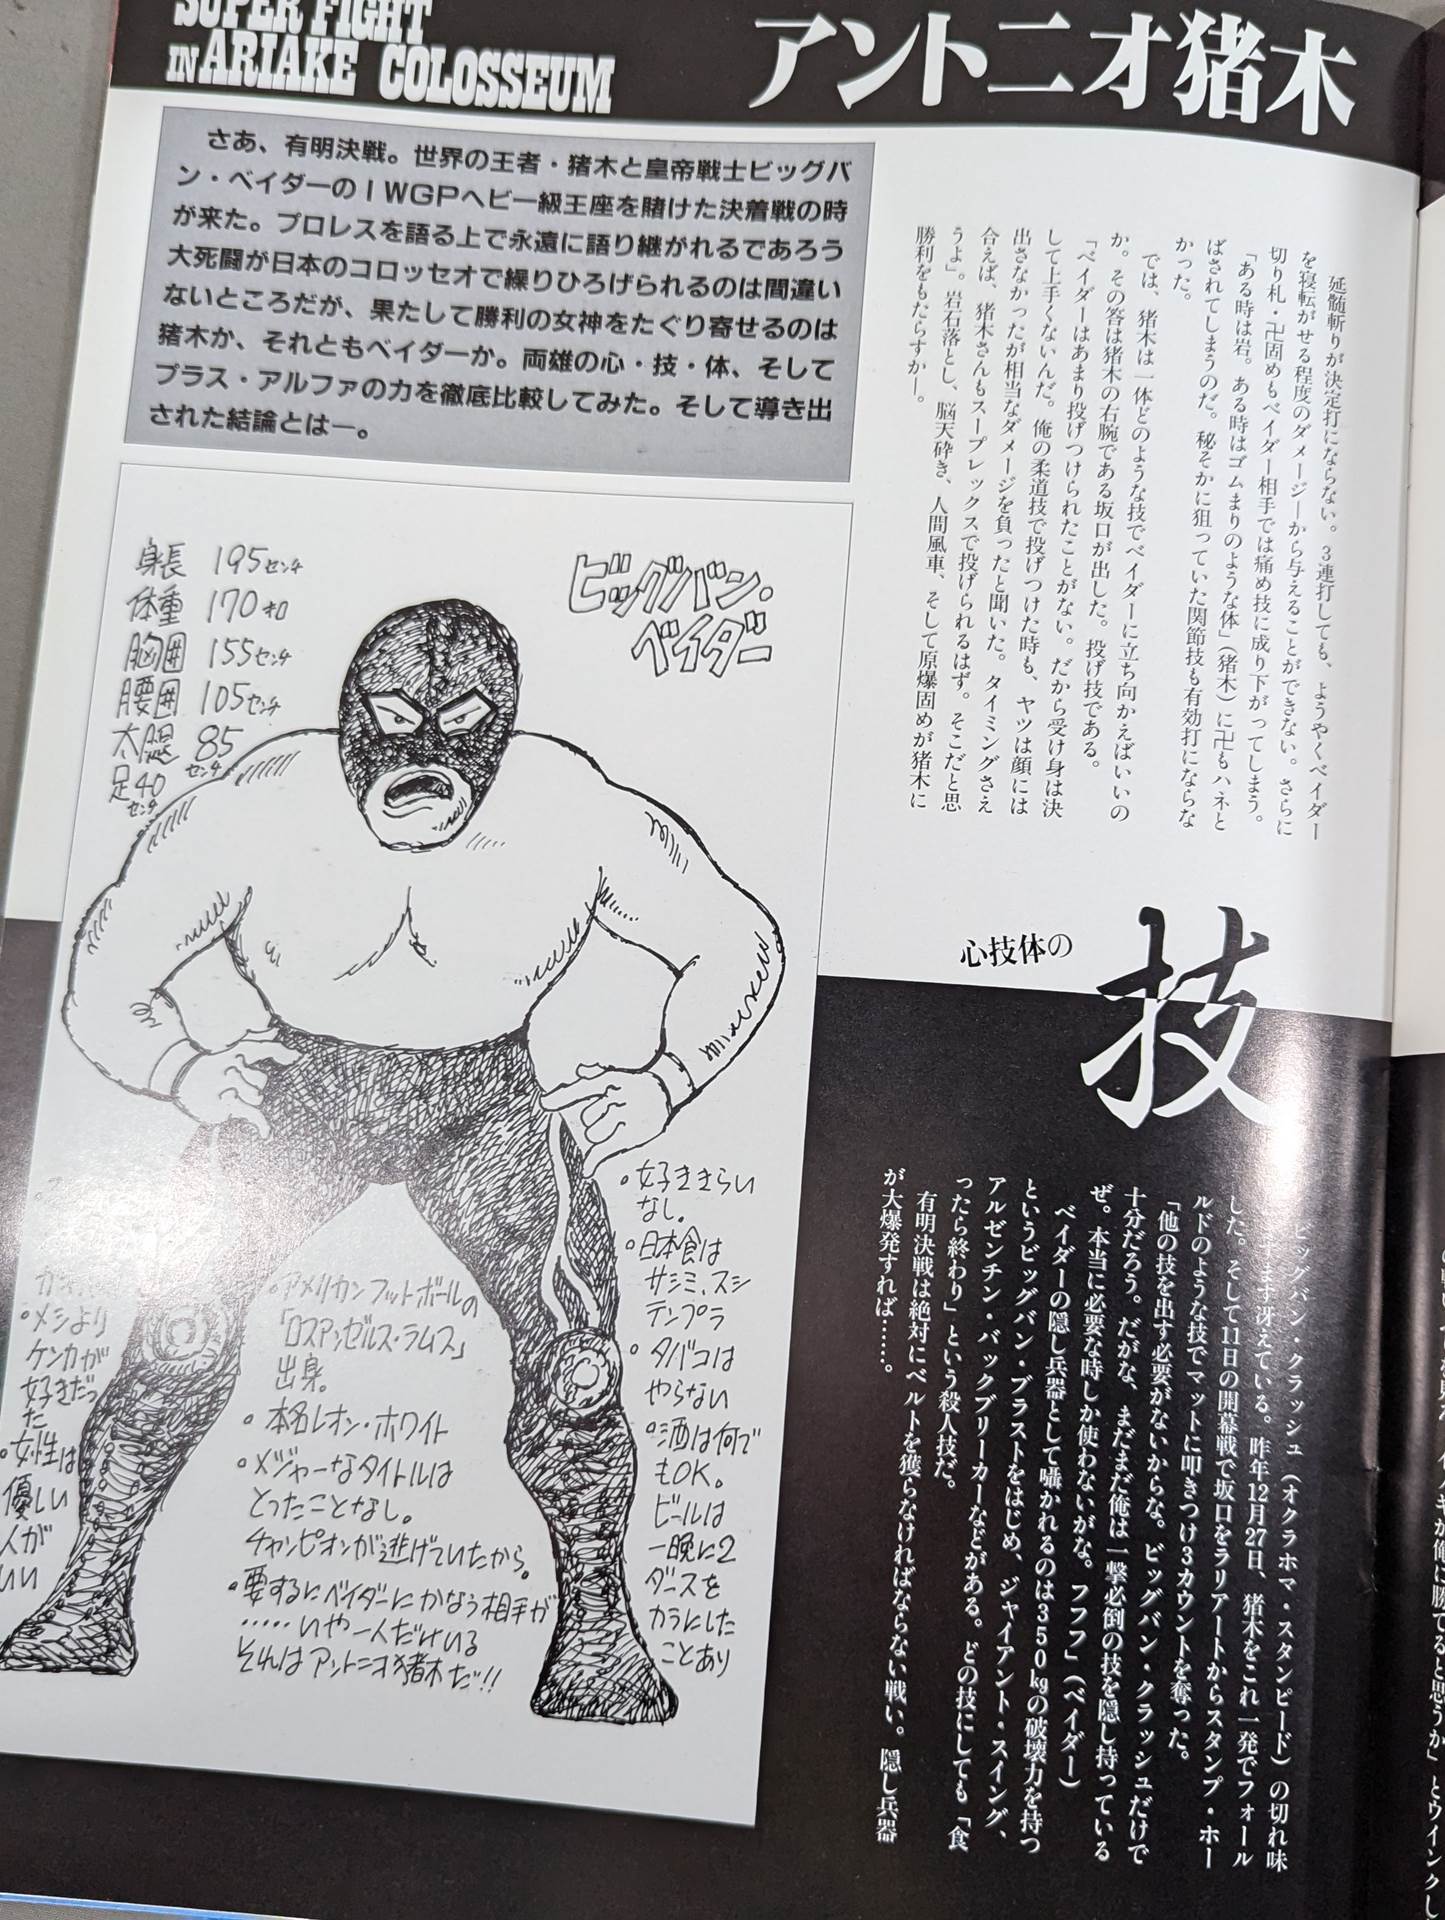 SUPER FIGHT
IN ARIAKE COLOSSEUM
アントニオ猪木
さあ、有明決戦。世界の王者・猪木と皇帝戦士ビッグバ
ン・ベイダーのIWGPヘビー級王座を賭けた決着戦の時
が来た。プロレスを語る上で永遠に語り継がれるであろう
大死闘が日本のコロッセオで繰りひろげられるのは間違い
ないところだが、果たして勝利の女神をたぐり寄せるのは
猪木か、それともベイダーか。両雄の心・技・体、そして
プラス・アルファの力を徹底比較してみた。そして導き出
された結論とは―。
延髄斬りが決定打にならない。3連打しても、ようやくベイダー
を寝転がせる程度のダメージから与えることができない。さらに
切り札・卍固めもベイダー相手では痛め技に成り下がってしまう。
「ある時は岩。ある時はゴムまりのような体」(猪木)に卍もハネと
ばされてしまうのだ。秘そかに狙っていた関節技も有効打にならな
かった。
では、猪木は一体どのような技でベイダーに立ち向かえばいいの
か。その答は猪木の右腕である坂口が出した。投げ技である。
「ベイダーはあまり投げつけられたことがない。だから受け身は決
して上手くないんだ。俺の柔道技で投げつけた時も、ヤツは顔には
出さなかったが相当なダメージを負ったと聞いた。タイミングさえ
合えば、猪木さんもスープレックスで投げられるはず。そこだと思
うよ」。岩石落とし、脳天砕き、人間風車、そして原爆固めが猪木に
勝利をもたらすか―。
心技体の
技
ビッグバン・クラッシュ(オクラホマ・スタンピード)の切れ味
ます冴えている。昨年12月27日、猪木をこれ一発でフォール
した。そして11日の開幕戦で坂口をラリアートからスタンプ・ホー
ルドのような技でマットに叩きつけ3カウントを奪った。
「他の技を出す必要がないからな。ビッグバン・クラッシュだけで
十分だろう。だがな、まだまだ俺は一撃必倒の技を隠し持っている
ぜ。本当に必要な時しか使わないがな。フフフ」(ベイダー)
ベイダーの隠し兵器として囁かれるのは350kgの破壊力を持つ
というビッグバン・ブラストをはじめ、ジャイアント・スイング、
アルゼンチン・バックブリーカーなどがある。どの技にしても「食
ったら終わり」という殺人技だ。
有明決戦は絶対にベルトを獲らなければならない戦い。隠し兵器
が大爆発すれば……。
ビッグバン・
ベイダー
身長 195センチ
体重 170キロ
胸囲 155センチ
腰囲 105センチ
太腿 85センチ
足40センチ
・メシより
ケンカが
好きだっ
た
・女性は
優しい
人が
いい
・アメリカンフットボールの
「ロスアンゼルス・ラムス」
出身。
・本名レオン・ホワイト
・メジャーなタイトルは
とったことなし。
チャンピオンが逃げていたから。
・要するにベイダーにかなう相手が
……いや一人だけいる
それはアントニオ猪木だ!!
・好ききらい
なし。
・日本食は
サシミ、スシ
テンプラ
・タバコは
やらない
・酒は何で
もOK。
ビールは
一晩に2
ダースを
カラにした
ことあり